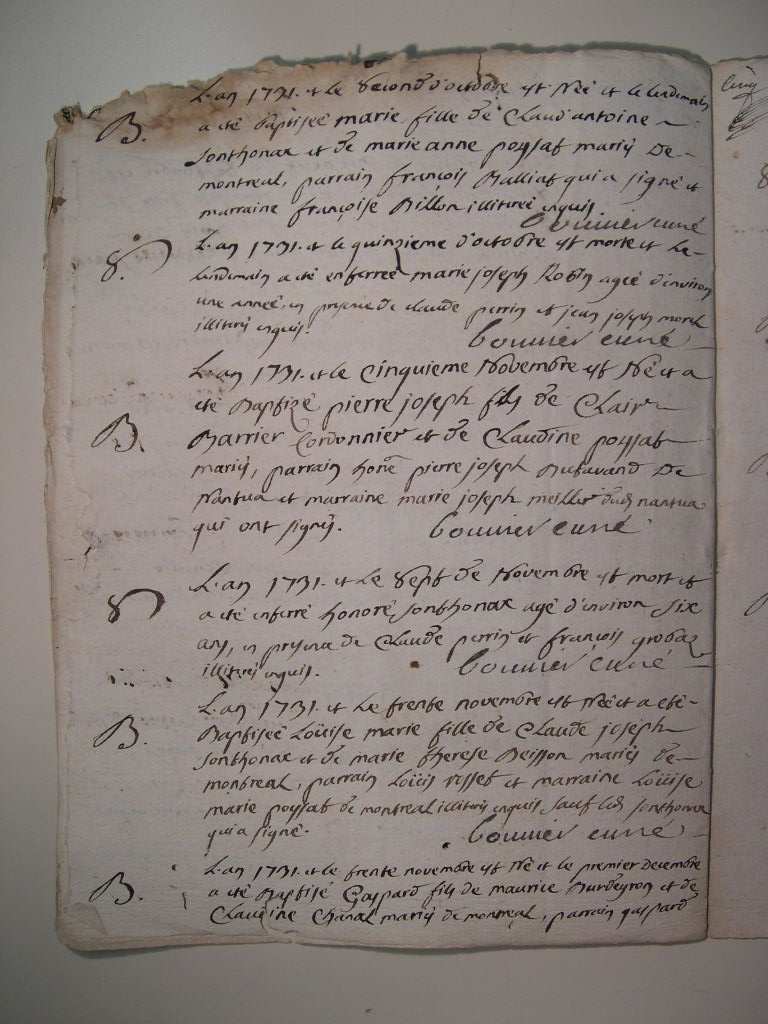 L'an 1731. et le second d'octobre est née et le lendemain
B. a été Baptisée marie fille de Claud'antoine
Sonthonax et de marie anne poysat mariés De
montreal, parrain françois Balliat qui a signé et
marraine françoise Billon illitirée enquis
bouvier curé
S. L'an 1731. et le quinzieme d'octobre est morte et le
lendemain a été enterrée marie joseph Robin agée d'environ
une année, en presence de claude perrin et jean joseph morel
illitirés enquis. bouvier curé
L'an 1731. et le Cinquieme Novembre est Né et a
été Baptizé pierre joseph fils de Clair
B. Barrier Cordonnier et de Claudine poysat
mariés, parrain hone pierre joseph Butavand De
Nantua et marraine marie joseph meillier dud nantua
qui ont signés. bouvier curé
L'an 1731. et Le Sept de Novembre est mort et
S a été enterré honoré Sonthonax agé d'environ Six
ans, en presence de Claude perrin et françois grobaz
illitirés enquis. bouvier curé
L'an 1731. et Le trente novembre est Née et a eté
B. Baptisée Loüise marie fille de Claude joseph
Sonthonax et de marie therese Beisson mariés de
montreal, parrain Loüis visset et marraine Loüise
marie poysat de montreal illitirés enquis sauf led sonthonax
qui a signé. bouvier curé
L'an 1731. et le trente novembre est Né et le premier Decembre
B. a été Baptisé Gaspard fils de maurice Burdeyron et de
Claudine Chanal mariés de montreal, parrain gaspard
cinq